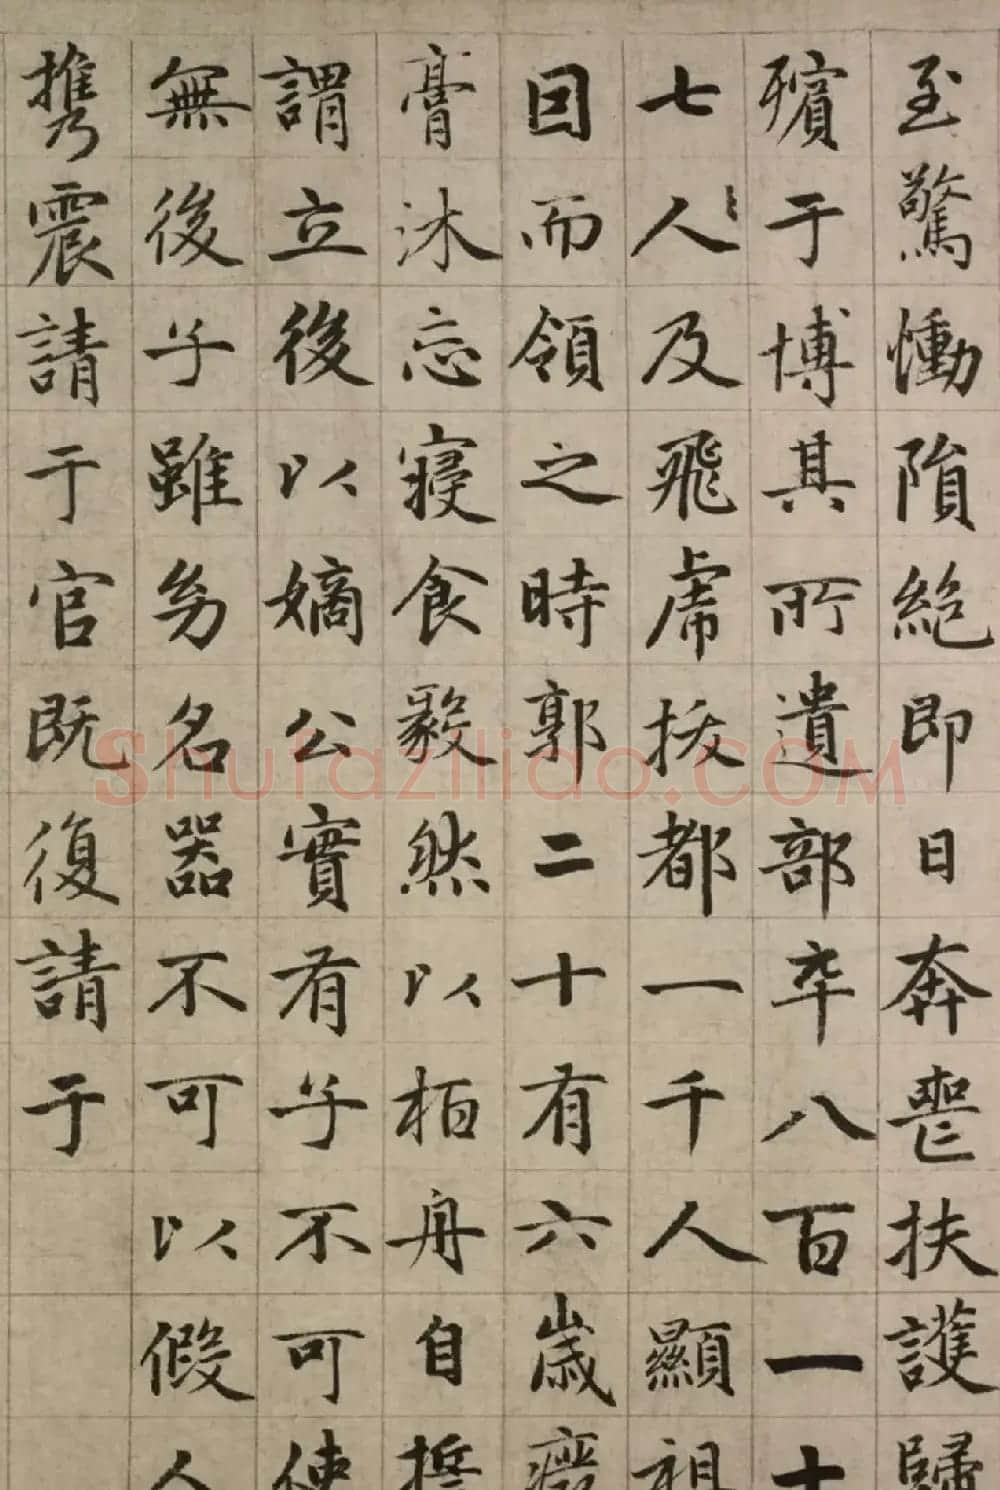 至驚慟隕絕即日奔喪扶護歸
殯于博其所遺部卒八百一十
七人及飛虎拔都一千人顯祖
因而領之時郭二十有六歲癈
膏沐忘寢食毅然以栢舟自誓
謂立後以嫡公實有子不可使
無後子雖幼名器不可以假人
携乃震請于官既復請于
Shufaziliao.COM